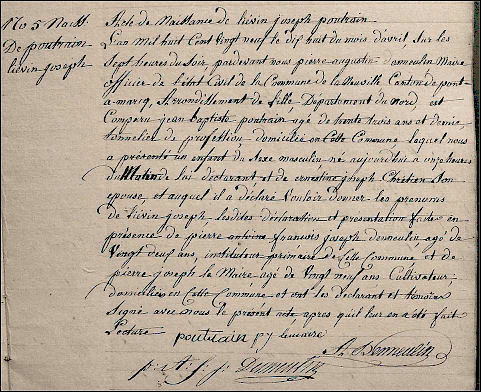 No 5 Naiss.
De poutrain
lievin joseph
Acte de Naissance de lievin joseph poutrain
L'an mil huit Cent vingt neuf le dix huit du mois d'avril sur les
Sept heures du Soir, pardevant nous pierre augustin Demeulin Maire
officier de l'état Civil de la Commune de la Neuville Canton de pont-
a-marcq, Arrondissement de lille, Département du Nord, est
Comparu jean baptiste poutrain agé de trente trois ans et demie
tonnelier de profession, domicilié en Cette Commune lequel nous
a présenté un enfant du Sexe masculin né aujourd'hui a onze heures
du Matin de lui déclarant et de ernestine joseph Chrétien Son
epouse, et auquel il a déclaré vouloir donner les prenoms
de lievin joseph, lesdites déclaration et presentation faite en
présence de pierre antoine francois joseph demeulin agé de
Vingt neuf ans, instituteur primaire de Cette Commune et de
pierre joseph le Maire agé de Vingt neuf ans Cultivateur,
domiciliés en Cette Commune et ont les déclarant et temoins
Signé avec nous le présent acte, après qu'il leur en a été fait
Lecture
poutrain pj lemaire
A. Demeulin
p. A. f. j. Dumeulin